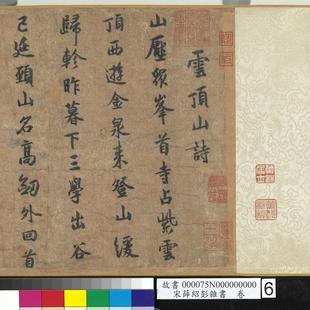 雲頂山詩
山壓衆峯首寺占紫雲
頂西遊金泉来登山緩
歸軫昨暮下三學出谷
已延頸山名高劒外回首
故書 000075N000000000
宋薛紹彭雜書 卷
6